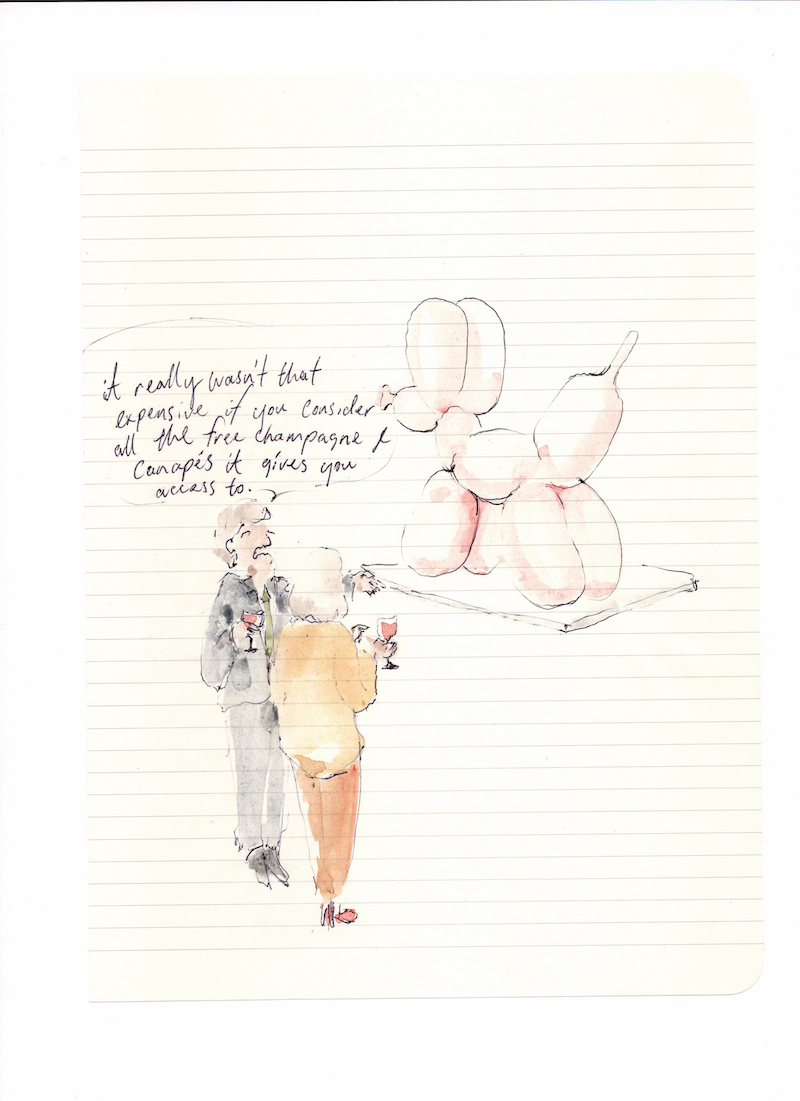 it really wasn't that
expensive if you consider
all the free champagne &
Canapés it gives you
access to.